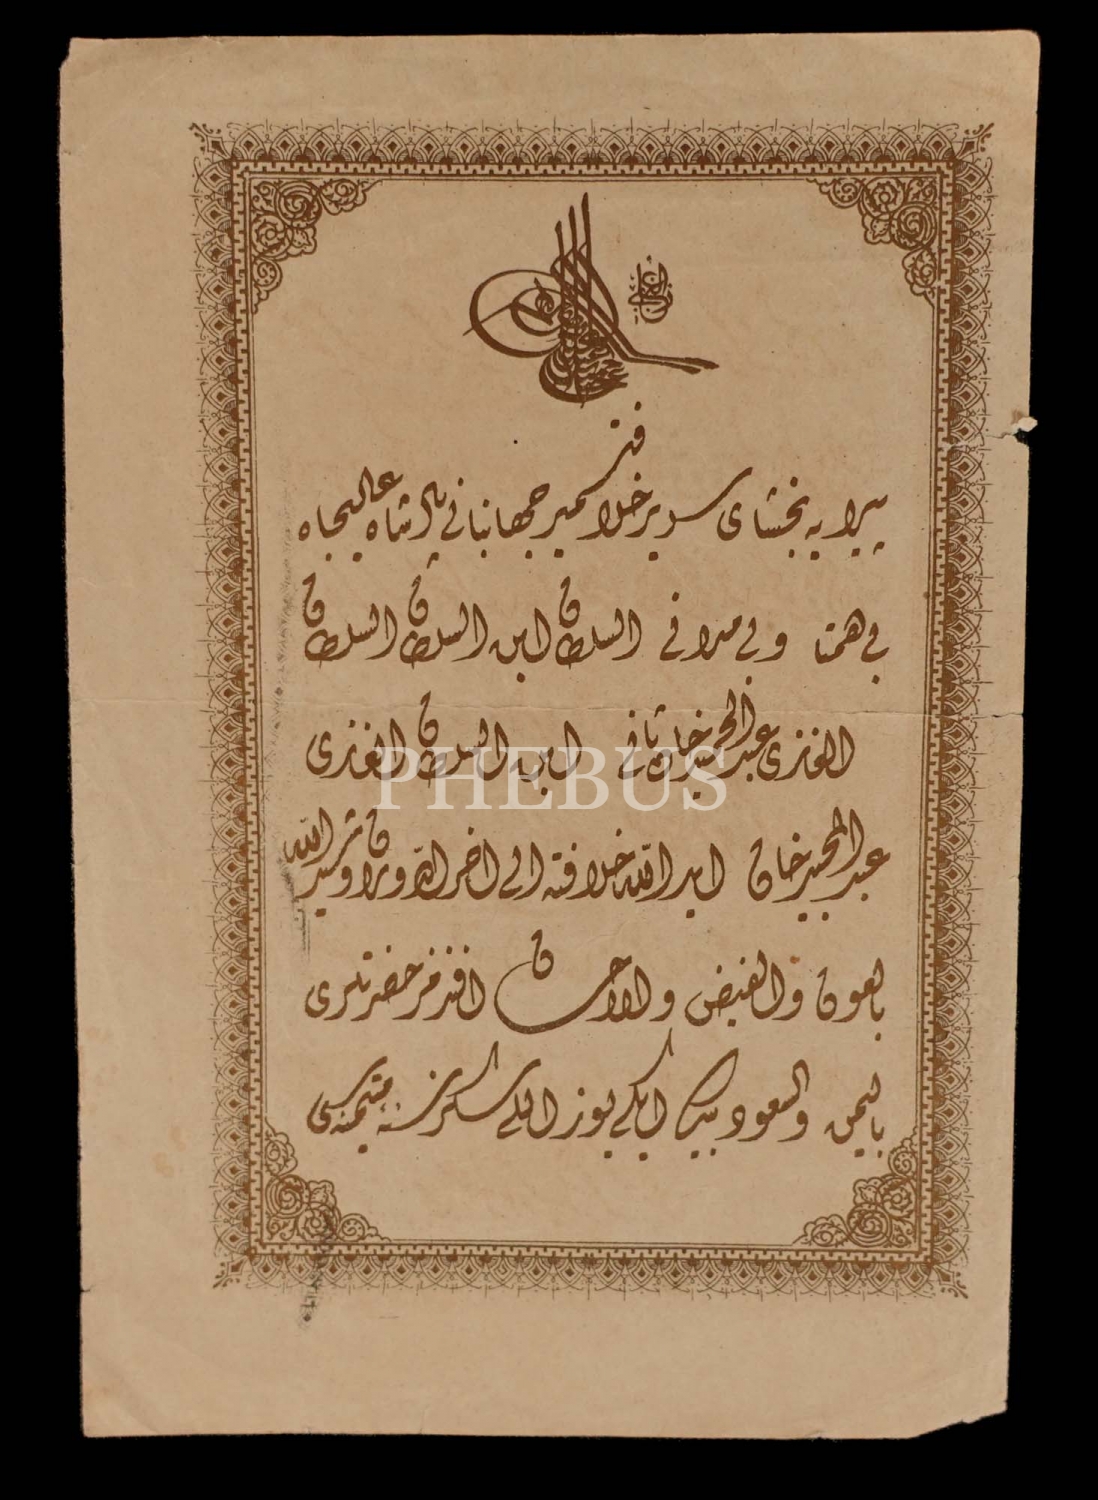 الغازي
پیرایه بخشای سریر خلافت سمیر جهانبانی پادشاه عالیجاه
بی همتا وبی مدانی السلطان ابن السلطان السلطان
الغازی عبد الحمید خان ثانی ابن السلطان الغازی
عبد المجید خان اید الله خلافته الی اخر الدوران وشید الله
بالعون والفیض والاحسان افندمز حضرتلری
بالیمن والسعود بیك ایکی یوز اللی سکز سنه
PHEBUS